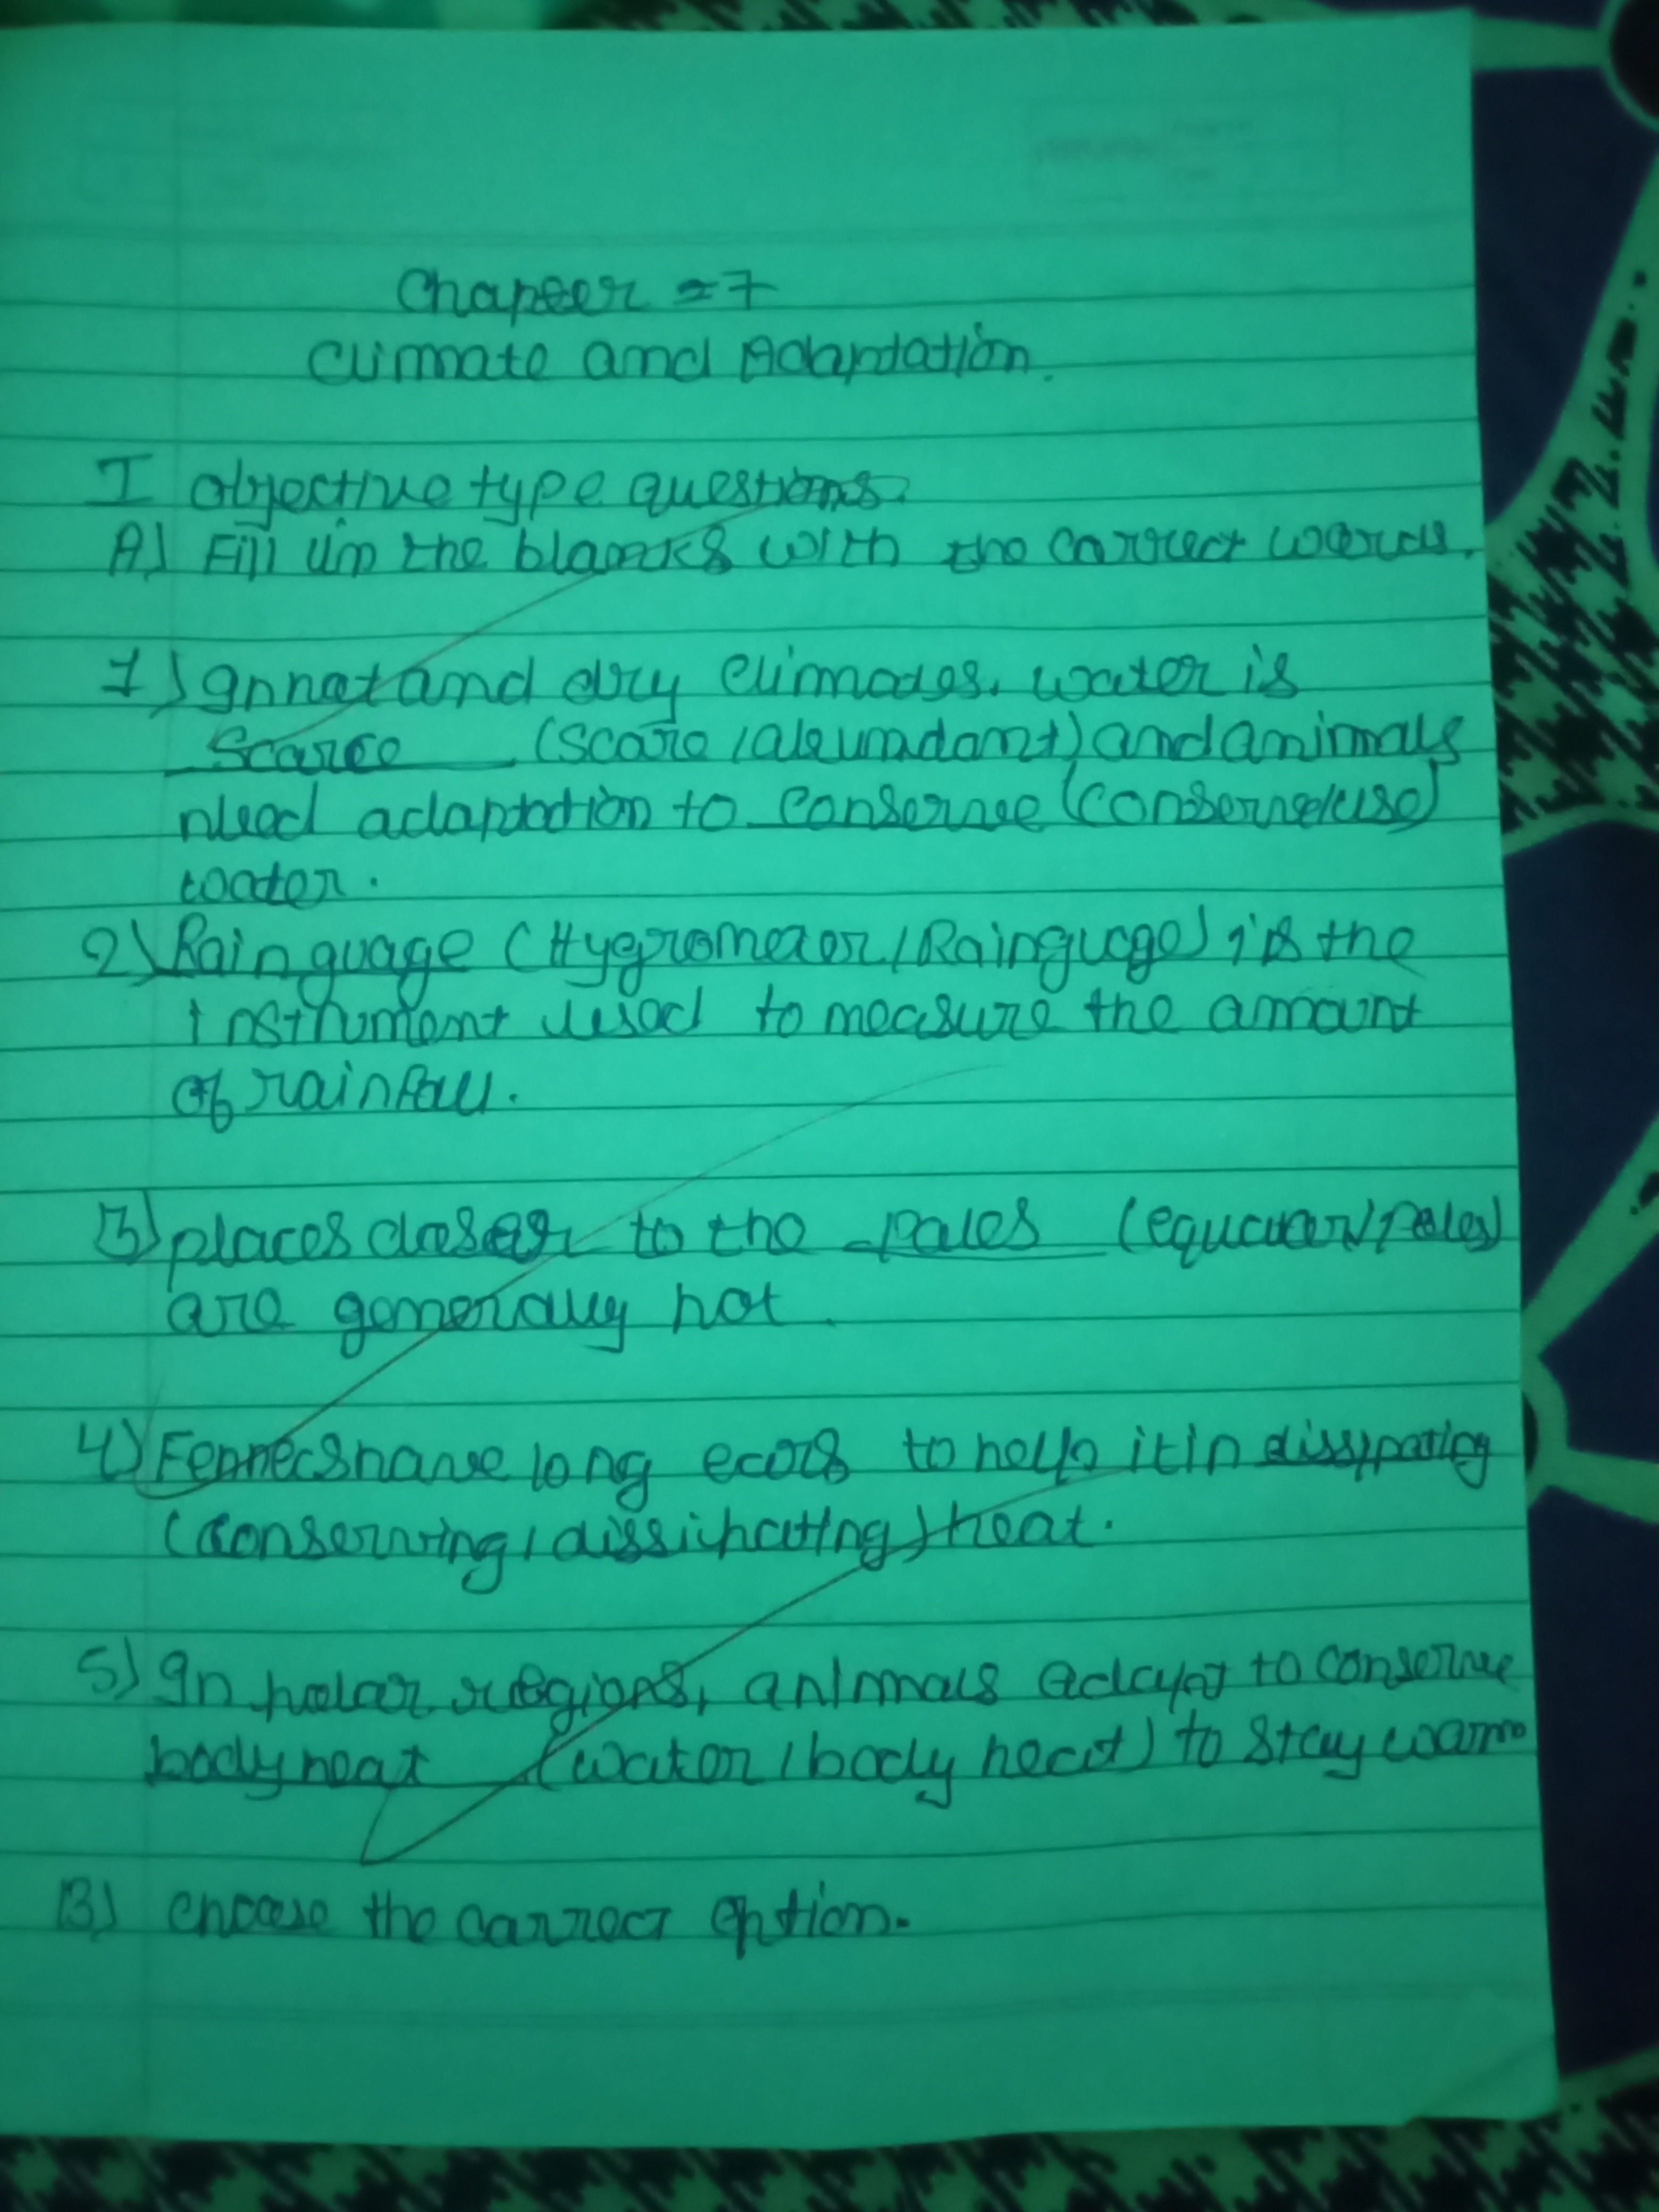 Chapter = 7
Climate and Adaptation.
I objective type questions.
A) Fill in the blanks with the correct words.
1) In hot and dry climates, water is
Scarce (scare / abundant) and animals
need adaptation to conserve (conserve/use)
water.
2) Rain guage (Hygrometer / Rainguage) is the
instrument used to measure the amount
of rainfall.
3) places closer to the poles (equator/poles)
are generally hot.
4) Fennecs have long ears to help it in dissipating
(conserving / dissipating) heat.
5) In polar regions, animals adapt to conserve
body heat (water / body heat) to stay warm
B) choose the correct option.